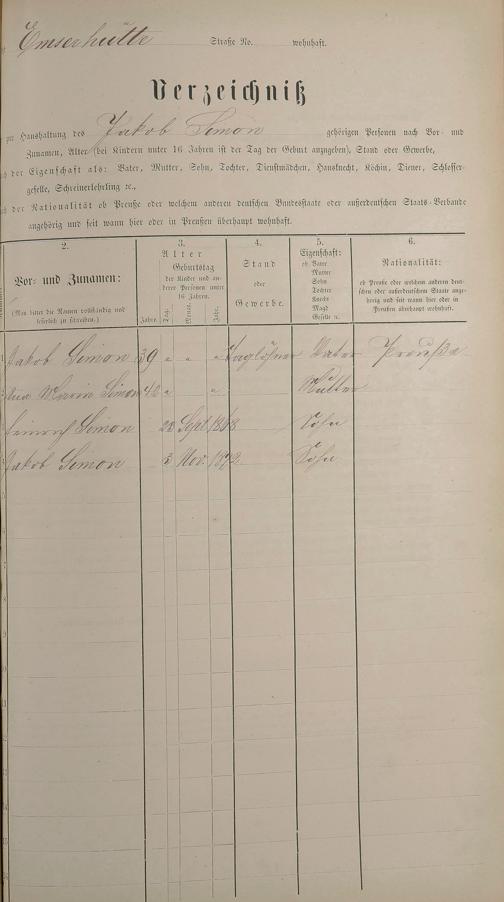 Emserhütte Straße No. wohnhaft.
Verzeichniß
zur Haushaltung des Jakob Simon gehörigen Personen nach Vor- und
Zunamen, Alter (bei Kindern unter 16 Jahren ist der Tag der Geburt anzugeben), Stand oder Gewerbe,
der Eigenschaft als: Vater, Mutter, Sohn, Tochter, Dienstmädchen, Hausknecht, Köchin, Diener, Schlosser-
geselle, Schreinerlehrling ꝛc.,
der Nationalität ob Preuße oder welchem anderen deutschen Bundesstaate oder außerdeutschen Staats-Verbande
angehörig und seit wann hier oder in Preußen überhaupt wohnhaft.
2. 3. 4. 5. 6.
Vor- und Zunamen:
(Man bittet die Namen vollständig und
leserlich zu schreiben.)
Alter
Geburtstag
der Kinder und an-
derer Personen unter
16 Jahren.
Jahre. Tag. Monat. Jahr.
Stand
oder
Gewerbe.
Eigenschaft:
ob Vater
Mutter
Sohn
Tochter
Knecht
Magd
Geselle ꝛc.
Nationalität:
ob Preuße oder welchem anderen deut-
schen oder außerdeutschen Staate ange-
hörig und seit wann hier oder in
Preußen überhaupt wohnhaft.
Jakob Simon 39 " " " Taglöhner Vater Preuße
Maria Simon 40 " " Mutter
Heinrich Simon 22 Sept. 1868 Sohn
Jakob Simon 3 Nov. 1872 Sohn